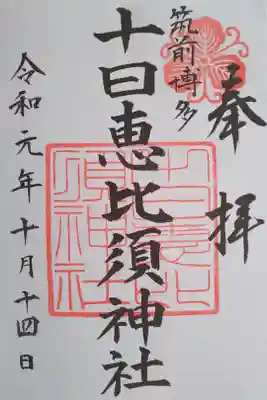 奉拝
筑前博多
十日恵比須神社
令和元年十月十四日
十日恵比須神社